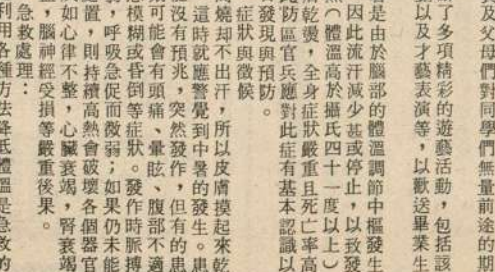 及父母們對同學們無量前途的期
了多項精彩的遊藝活動，包括該
以及才藝表演等，以歡送畢業生
是由於腦部的體溫調節中樞發生
因此流汗減少甚或停止，以致發
（體溫高於攝氏四十一度以上）
乾燙，全身症狀嚴重且死亡率高
防區官兵應對此症有基本認識以
發現與預防。
症狀與徵候
燒却不出汗，所以皮膚摸起來乾
這時就應警覺到中暑的發生。患
沒有預兆，突然發作，但有的患
可能會有頭痛、暈眩、腹部不適
模糊或昏倒等症狀。發作時脈搏
，呼吸急促而微弱；如果仍未能
置，則持續高熱會破壞各個器官
如心律不整，心臟衰竭，腎衰竭
，腦神經受損等嚴重後果。
急救處理：
利用各種方法降低體溫是急救的